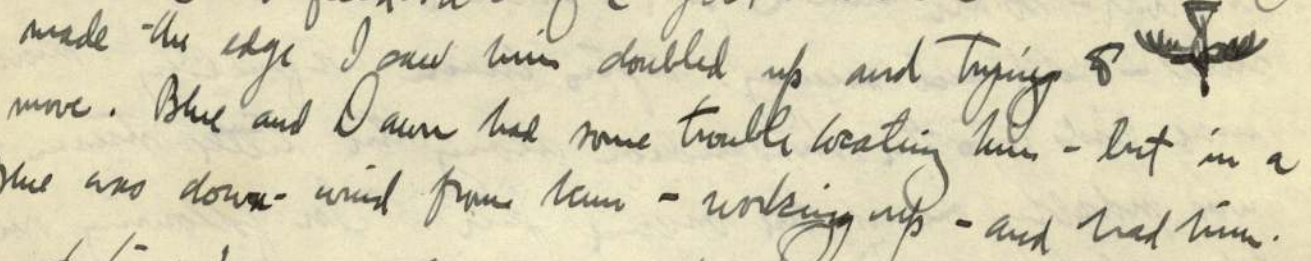 made the edge I saw him doubled up and trying to
move. Blue and Dawn had some trouble locating him - but in a
Blue was down-wind from him - working up - and had him.